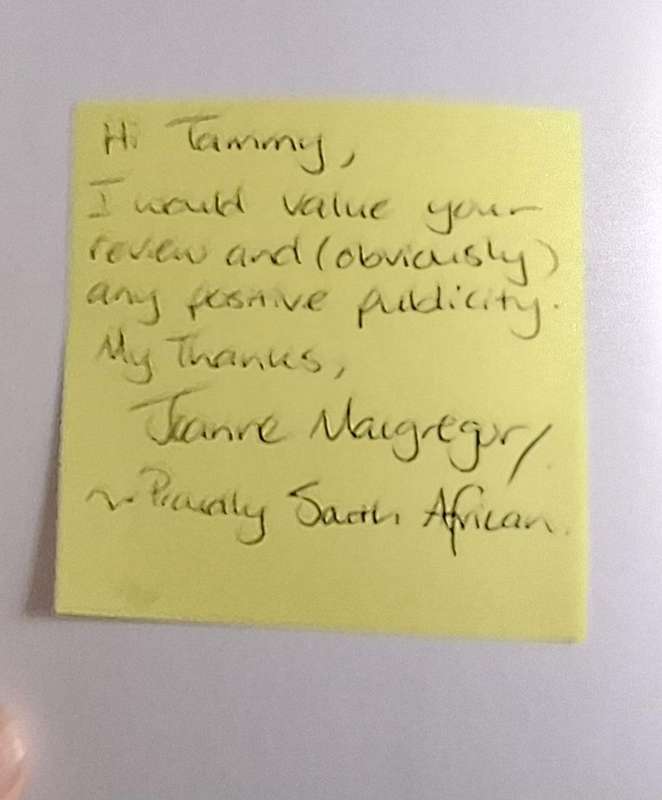 Hi Tammy,
I would value your
review and (obviously)
any positive publicity.
My Thanks,
Joanne Macgregor
~ Proudly South African.